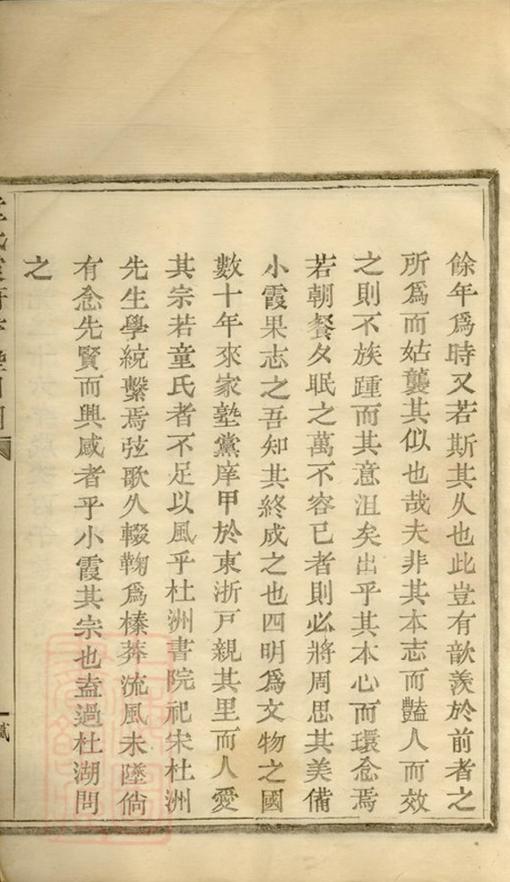 餘年爲時又若斯其久也此豈有歆羨於前者之
所爲而姑襲其似也哉夫非其本志而豔人而效
之則不旋踵而其意沮矣出乎其本心而環念焉
若朝餐夕眠之萬不容已者則必將周思其美備
小霞果志之吾知其終成之也四明爲文物之國
數十年來家塾黨庠甲於東浙戸親其里而人愛
其宗若童氏者不足以風乎杜洲書院祀宋杜洲
先生學統繫焉弦歌久輟鞠爲榛莽流風未墜倘
有念先賢而興感者乎小霞其宗也盍過杜湖問
之